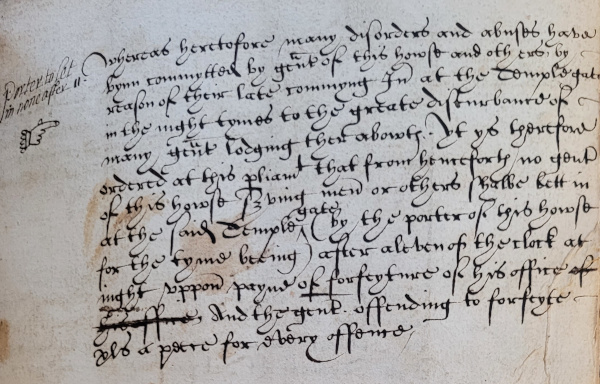 Porter to lett
in none after 11
Whereas heretofore many disorders and abuses have
bynn commytted by gent of this howse and others by
reason of their late commyng In at the Temple gate
in the night tymes to the greate disturbance of
many gent lodging ther abowth. It ys therefore
ordered at this pliamt that from henceforth no gent
of this howse s'ving men or others shalbe lett in
at the said Temple gate (by the porter of this howse
for the tyme beeing) after aleven of the clock at
night vppon payne of forfeyture of his office of
his office And the gent. offending to forfeyte
xls a peece for every offence